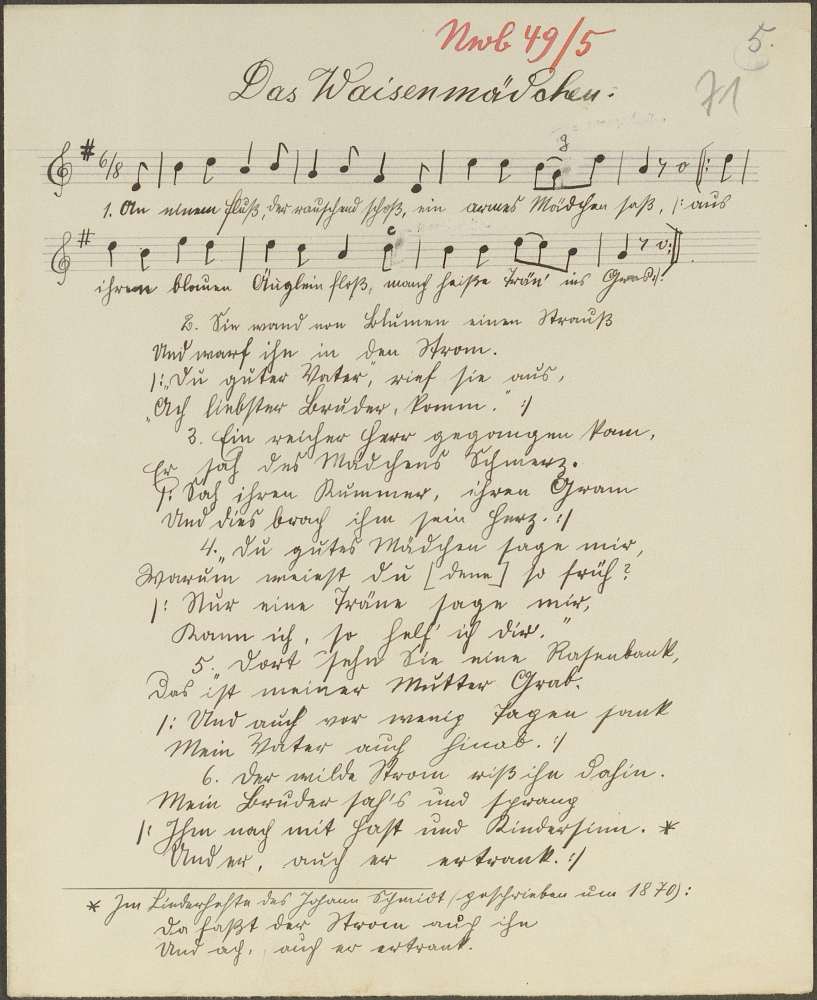 Nwb 49/5
5.
71
Das Waisenmädchen.
6/8
g
1. An einem Fluß, der rauschend schoß, ein armes Mädchen saß, |: aus
c
ihren blauen Äuglein floß, manch heiße Trän' ins Gras :|.
2. Sie wand von Blumen einen Strauß
Und warf ihn in den Strom.
|: „Du guter Vater", rief sie aus,
„Ach liebster Bruder, komm." :|
3. Ein reicher Herr gegangen kam,
Er sah des Mädchens Schmerz.
|: Sah ihren Kummer, ihren Gram
Und dies brach ihm sein Herz. :|
4. „Du gutes Mädchen sage mir,
Warum weinst du [denn] so früh?
|: Nur eine Träne sage mir,
Kann ich, so helf' ich dir."
5. „Dort sehn Sie eine Rasenbank,
Das ist meiner Mutter Grab.
|: Und auch vor wenig Tagen sank
Mein Vater auch hinab. :|
6. Der wilde Strom riß ihn dahin.
Mein Bruder sah's und sprang
|: Ihm nach mit Hast und Kindersinn. *
Und er, auch er ertrank. :|
* Im Liederhefte des Johann Schmidt (geschrieben um 1870):
Da faßt der Strom auch ihn
Und ach, auch er ertrank.